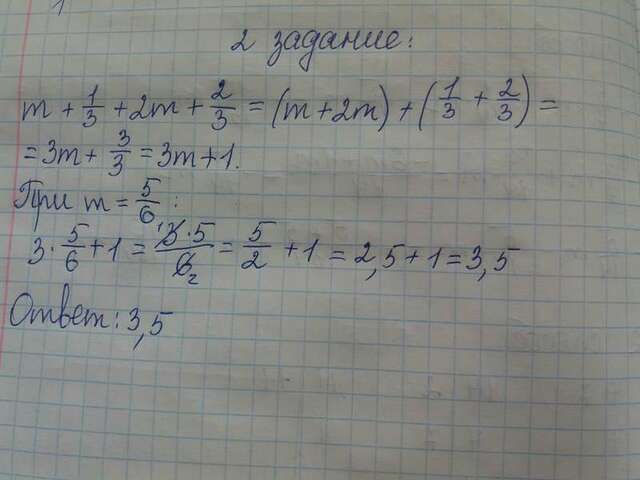 2 задание:
m + 1/3 + 2m + 2/3 = (m + 2m) + (1/3 + 2/3) =
= 3m + 3/3 = 3m + 1.
При m = 5/6 :
3 · 5/6 + 1 = 3 · 5/6 = 5/2 + 1 = 2,5 + 1 = 3,5
Ответ: 3,5